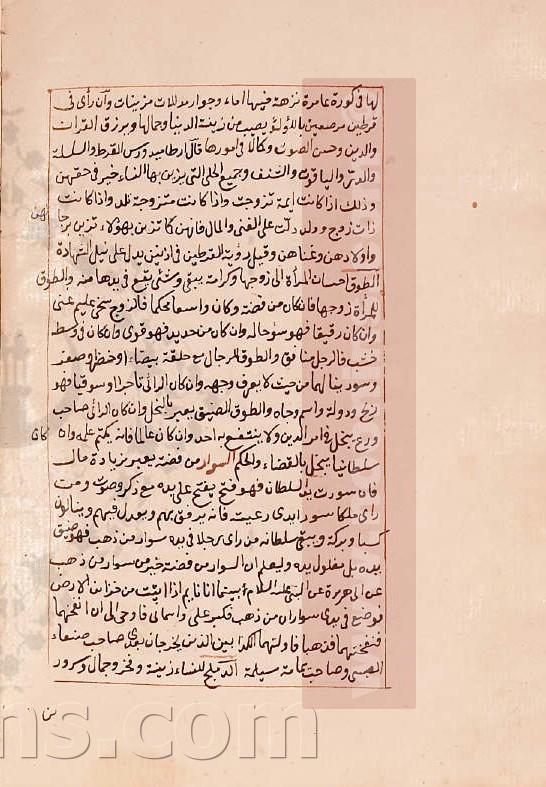 لها فى كورة عامرة نزهة فيها اماء وجوار مدللات مزينات وان رأى فى
قرطين مرصعين باللؤلؤ يصيب من زينة الدنيا وجمالها ويرزق القران
والدين وحسن الصوت وكمالا فى امورها قال ارطاميدورس القرط والسلسلة
والدر والياقوت والشنف وجميع الحلى التى يزين بها النساء خير فى حقهن
وذلك اذا كانت ايمة تزوجت واذا كانت متزوجة تلد واذا كانت
ذات زوج وولد دلت على الغنى والمال فانهن كما تزين بهؤلاء تزين برجالهن
واولادهن وغناهن وقيل رؤية القرطين فى اذنين يدل على نيل الشهادة
الطوق احسان المرأة الى زوجها وكرامة يبقى وشئ يقع فى يدها منه والطوق
للمرأة زوجها فان كان من فضة وكان واسعا محكما فالزوج سخى حليم غنى
وان كان رقيقا فهو سوحاله وان كان من حديد فهو قوى وان كان فى وسطه
خشب فالرجل منافق والطوق للرجال مع حلقة بيضاء او خضرا وصفر
وسود ينالهما من حيث لا يعرف وجهه وان كان الرائى تاجرا او سوقيا فهو
ربح ودولة واسم وجاه والطوق الضيق يعبر بالبخل وان كان الرائى صاحب
ورع يبخل فى امر الدين ولا ينتفع به احد وان كان عالما فانه يكتم علمه وان كان
سلطانيا يبخل بالقضاء والحكم السوار من فضة يعبر بزيادة مال
فان سورت يد السلطان فهو فتح يفتح على يده مع ذكر وصوت ومن
راى ملكا سور ايدى رعيته فانه يرفق بهم ويعدل فيهم وينالون
كسبا وبركة ويبقى سلطانه من راى رجلا فى يده سوار من ذهب فهو ضيق
يده بل مغلول يده وليعلم ان السوار من فضة خير من سوار من ذهب
عن ابى هريرة عن النبى عليه السلام بينما انا نايم اذا اتيت من خزاين الارض
فوضع فى يدى سواران من ذهب فكبر على واسمانى فاوحى الى ان انفخهما
فنفختهما فذهبا فاولتهما الكذابين الذين يخرجان بعدى صاحب صنعاء
العبسى وصاحب يمامة مسيلمة الدملج للنساء زينة وفخر وجمال وسرور
ns.com